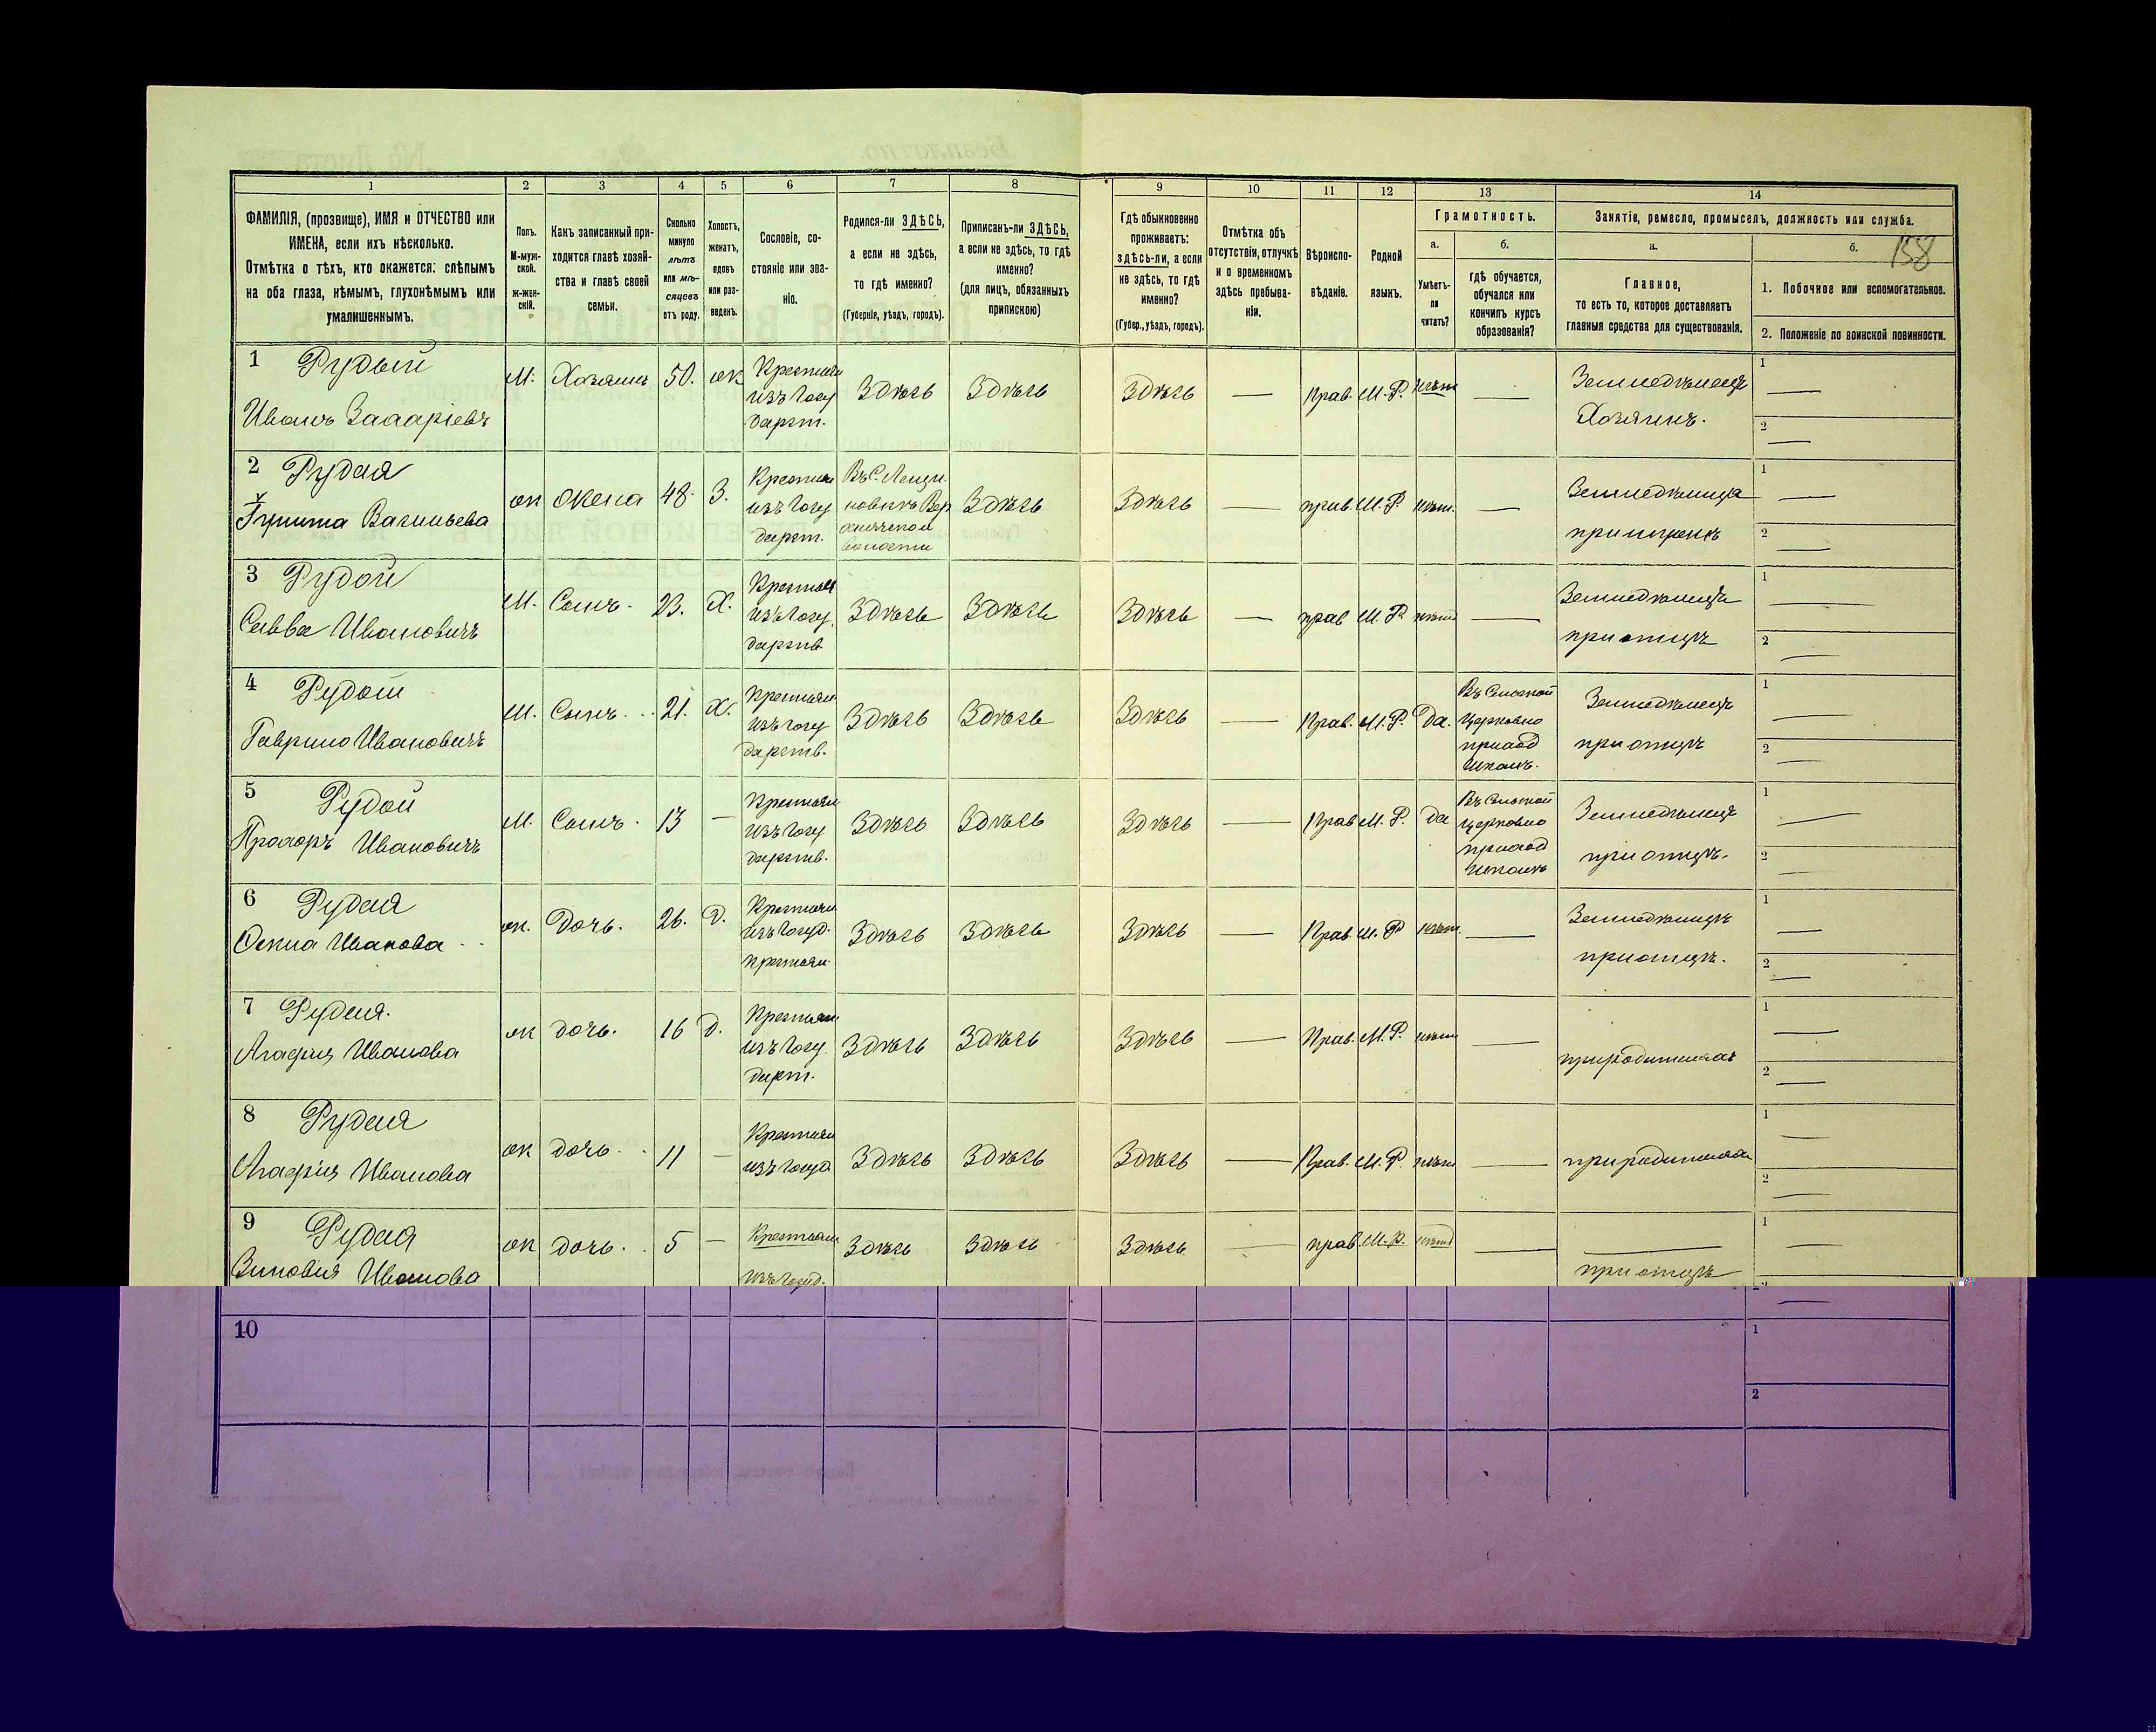 158
1 2 3 4 5 6 7 8 9 10 11 12 13 14
ФАМИЛІЯ, (прозвище), ИМЯ и ОТЧЕСТВО или
ИМЕНА, если ихъ нѣсколько.
Отмѣтка о тѣхъ, кто окажется: слѣпымъ
на оба глаза, нѣмымъ, глухонѣмымъ или
умалишеннымъ.
Полъ.
М-муж-
ской.
ж-жен-
скій.
Какъ записанный при-
ходится главѣ хозяй-
ства и главѣ своей
семьи.
Сколько
минуло
лѣтъ
или мѣ-
сяцевъ
отъ роду.
Холостъ,
женатъ,
вдовъ
или раз-
веденъ.
Сословіе, со-
стояніе или зва-
ніе.
Родился-ли ЗДѢСЬ,
а если не здѣсь,
то гдѣ именно?
(Губернія, уѣздъ, городъ).
Приписанъ-ли ЗДѢСЬ,
а если не здѣсь, то гдѣ
именно?
(для лицъ, обязанныхъ
припискою)
Гдѣ обыкновенно
проживаетъ:
здѣсь-ли, а если
не здѣсь, то гдѣ
именно?
(Губер., уѣздъ, городъ).
Отмѣтка объ
отсутствіи, отлучкѣ
и о временномъ
здѣсь пребыва-
ніи.
Вѣроиспо-
вѣданіе.
Родной
языкъ.
Грамотность.
а.
Умѣетъ-
ли
читать?
б.
гдѣ обучается,
обучался или
кончилъ курсъ
образованія?
Занятіе, ремесло, промыселъ, должность или служба.
а.
Главное,
то есть то, которое доставляетъ
главныя средства для существованія.
б.
1. Побочное или вспомогательное.
2. Положеніе по воинской повинности.
1 Рудый
Иванъ Захаріевъ
М. Хозяинъ 50. ж
Крестьян
изъ госу
дарст.
Здѣсь Здѣсь Здѣсь — Прав. М.Р. нѣт —
Земледѣлецъ
Хозяинъ.
1 —
2 —
2 Рудая
Васильева
ж жена 48. З.
Крестьян
изъ госу
дарст.
Въ С.
волости
Здѣсь Здѣсь — прав. М.Р. нѣт. —
1 —
2 —
3 Рудой
Савва Ивановичъ
М. Сынъ. 23. Х.
Крестьян
изъ госу.
дарств.
Здѣсь Здѣсь Здѣсь — прав М.Р. нѣт —
при отцѣ
1 —
2 —
4 Рудой
Гаврило Ивановичъ
М. Сынъ. 21. Х.
Крестьян
изъ госу
дарств.
Здѣсь Здѣсь Здѣсь — Прав. М.Р. Да.
Въ Сельской
Церковно
приход
школѣ.
Земледѣлецъ
при отцѣ
1 —
2 —
5 Рудой
Прохоръ Ивановичъ
М. Сынъ. 13 —
Крестьян
изъ госу
дарств.
Здѣсь Здѣсь Здѣсь — Прав М.Р. да
Въ Сельской
Церковно
приход
школѣ
Земледѣлецъ
при отцѣ.
1 —
2 —
6 Рудая
Ивановa
ж. Дочь. 26. Д.
Крестьян
изъ госуд.
крестьян.
Здѣсь Здѣсь Здѣсь — Прав. М.Р нѣт. —
при отцѣ.
1 —
2 —
7 Рудая.
Иванова
ж дочь. 16 Д.
Крестьян
изъ госу.
дарст.
Здѣсь Здѣсь Здѣсь — Прав. М.Р. нѣт —
при родителяхъ
1 —
2 —
8 Рудая
Агафія Иванова
ж дочь. 11 —
Крестьян
изъ госуд
Здѣсь Здѣсь Здѣсь — Прав. М.Р. нѣт —
при родителях
1 —
2 —
9 Рудая
Зиновия Иванова
ж дочь. 5 —
Крестьян
изъ госуд.
Здѣсь Здѣсь Здѣсь — прав. М.Р. нѣт —
при отцѣ
1 —
2 —
10
1
2